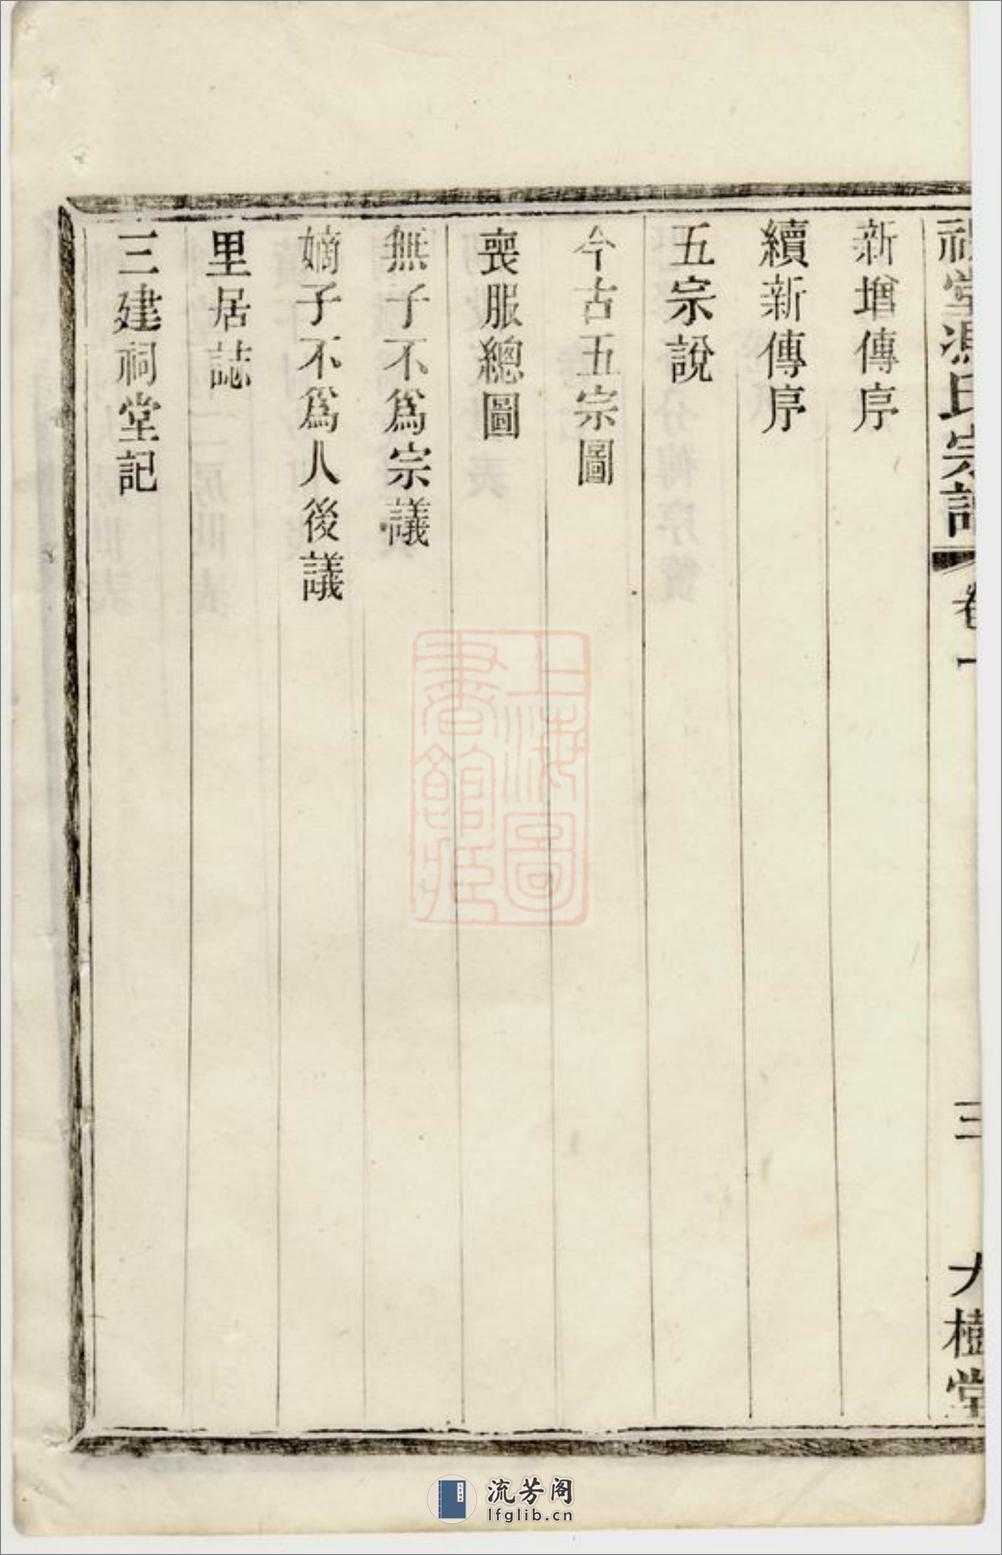 堂馮氏宗譜
卷一
三
大樹堂
新增傳序
續新傳序
五宗說
今古五宗圖
喪服總圖
無子不爲宗議
嫡子不爲人後議
里居誌
三建祠堂記
上海圖書館藏
流芳阁
lfglib.cn